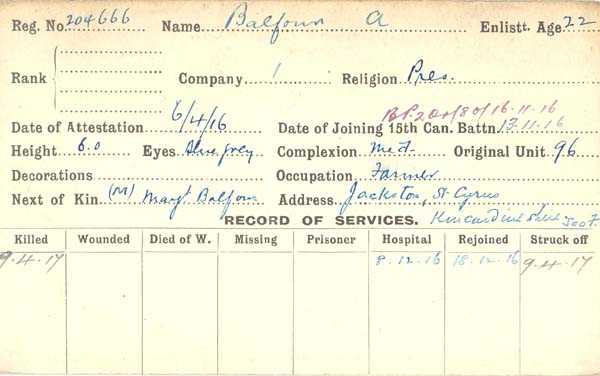 Reg. No. 204666 Name Balfour A Enlistt. Age 22
Rank Company 1 Religion Pres.
B.P. 204/80/16-11-16
Date of Attestation 6/4/16 Date of Joining 15th Can. Battn. 17-11-16
Height 6.0 Eyes Blue grey Complexion Med. Original Unit 96
Decorations Occupation Farmer
Next of Kin (M) Margt Balfour Address Jackston, St Cyrus
RECORD OF SERVICES. Kincardineshire Scot.
Killed Wounded Died of W. Missing Prisoner Hospital Rejoined Struck off
9.4.17 8.12.16 18.12.16 9.4.17